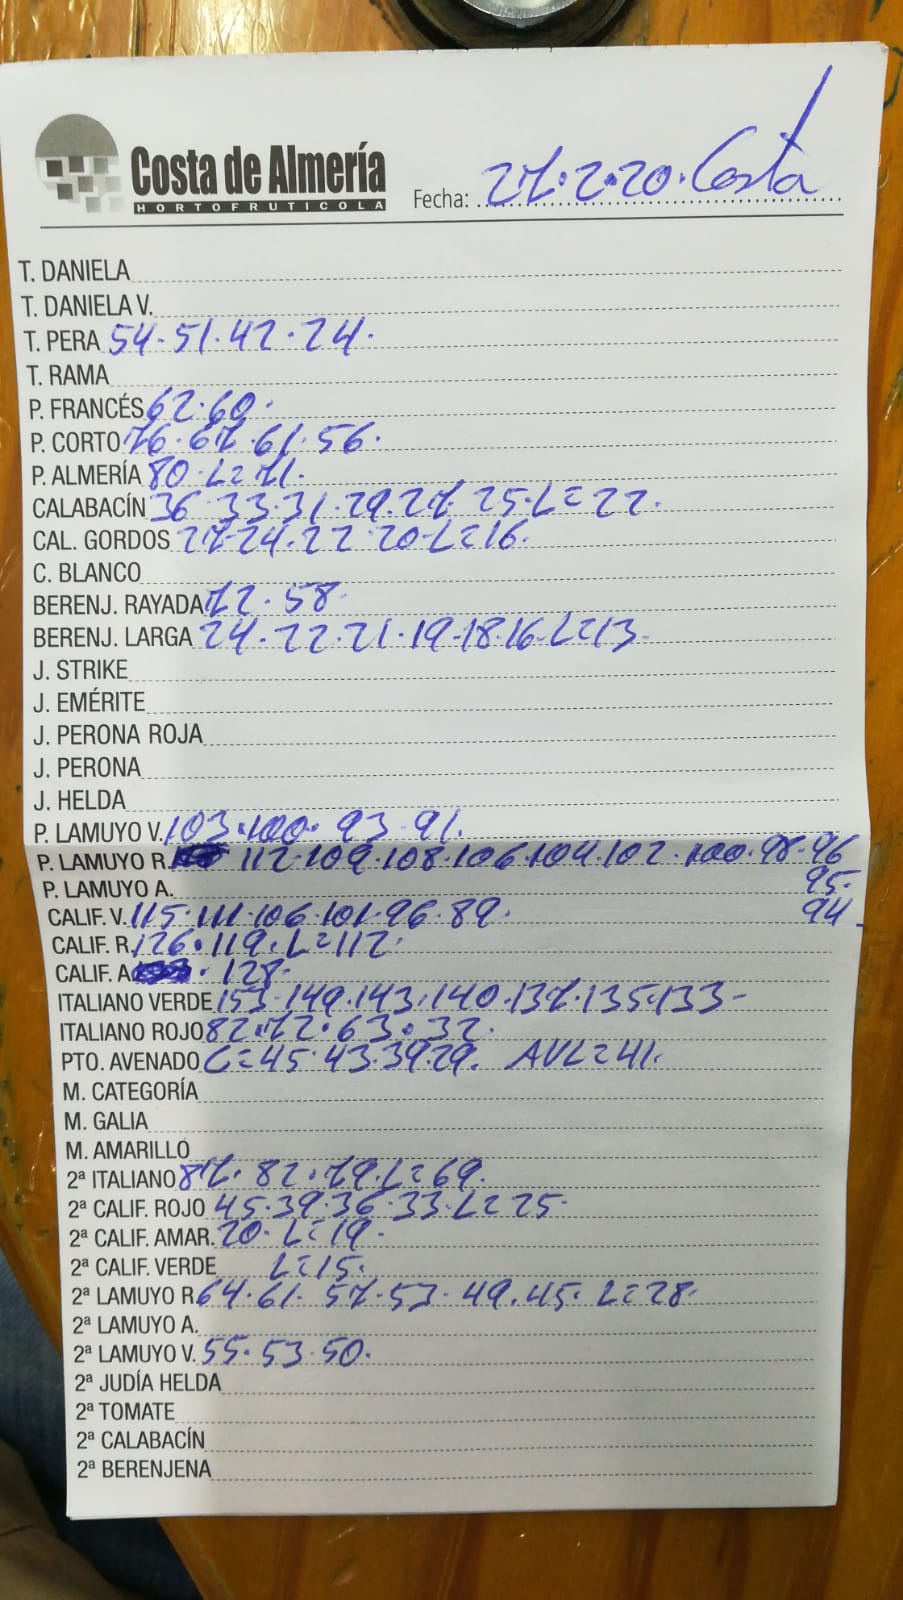 Costa de Almería
HORTOFRUTICOLA
Fecha: 27.2.20. Costa
T. DANIELA
T. DANIELA V.
T. PERA 54.51.42.24.
T. RAMA
P. FRANCÉS 62.60.
P. CORTO 76.67.61.56.
P. ALMERÍA 80.L=71.
CALABACÍN 36.33.31.29.27.25.L=22.
CAL. GORDOS 27.24.22.20-L=16.
C. BLANCO
BERENJ. RAYADA 72.58.
BERENJ. LARGA 24.22.21.19-18.16-L=13-
J. STRIKE
J. EMÉRITE
J. PERONA ROJA
J. PERONA
J. HELDA
P. LAMUYO V. 103.100.93.91.
P. LAMUYO R. 112.109.108.106.104.102.100.98.96
P. LAMUYO A. 95.
CALIF. V. 115.111.106.101.96.89. 94
CALIF. R. 126.119.L=112.
CALIF. A . 128.
ITALIANO VERDE 153.149.143.140.137.135.133-
ITALIANO ROJO 82.72.63.32.
PTO. AVENADO C=45.43.39.29. AVL=41.
M. CATEGORÍA
M. GALIA
M. AMARILLO
2ª ITALIANO 87.82.79.L=69.
2ª CALIF. ROJO 45.39.36.33.L=25-
2ª CALIF. AMAR. 20.L=19.
2ª CALIF. VERDE L=15.
2ª LAMUYO R. 64.61.57.53.49.45.L=28.
2ª LAMUYO A.
2ª LAMUYO V. 55.53.50.
2ª JUDÍA HELDA
2ª TOMATE
2ª CALABACÍN
2ª BERENJENA